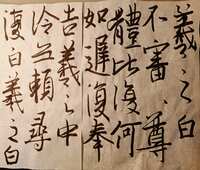 羲之白
不審尊
體比復何
如遲復奉
告羲之中
冷無賴尋
復白羲之白